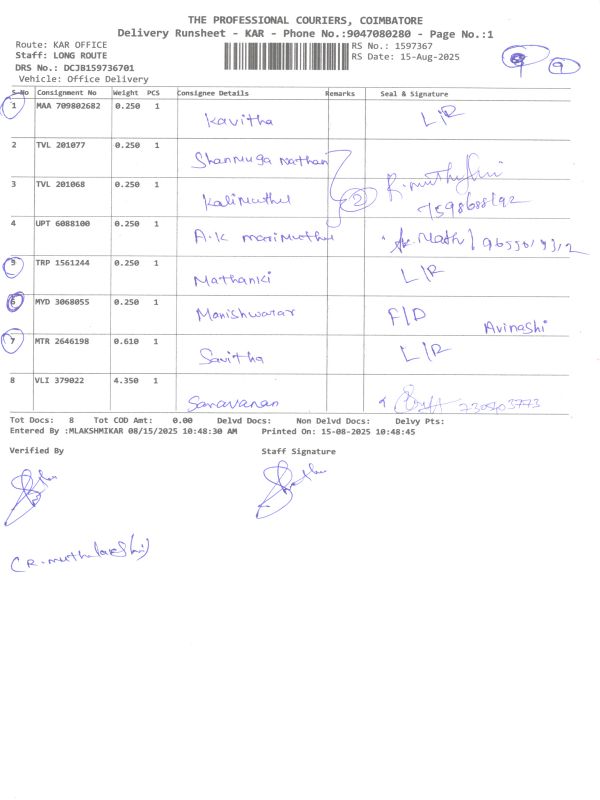 THE PROFESSIONAL COURIERS, COIMBATORE
Delivery Runsheet - KAR - Phone No.:9047080280 - Page No.:1
Route: KAR OFFICE
RS No.: 1597367
Staff: LONG ROUTE
RS Date: 15-Aug-2025
DRS No.: DCJB159736701
9
Vehicle: Office Delivery
S-No Consignment No Weight PCS Consignee Details Remarks Seal & Signature
1 MAA 709802682 0.250 1 Kavitha L/R
2 TVL 201077 0.250 1 Shanmuga Nathan
3 TVL 201068 0.250 1 Kalimuthu 2
4 UPT 6088100 0.250 1 A.K marimuthu
5 TRP 1561244 0.250 1 Mathanki L/R
6 MYD 3068055 0.250 1 Manishwarar F/D Avinashi
7 MTR 2646198 0.610 1 Savitha L/R
8 VLI 379022 4.350 1 Saravanan
Tot Docs: 8 Tot COD Amt: 0.00 Delvd Docs: Non Delvd Docs: Delvy Pts:
Entered By :MLAKSHMIKAR 08/15/2025 10:48:30 AM Printed On: 15-08-2025 10:48:45
Verified By
Staff Signature